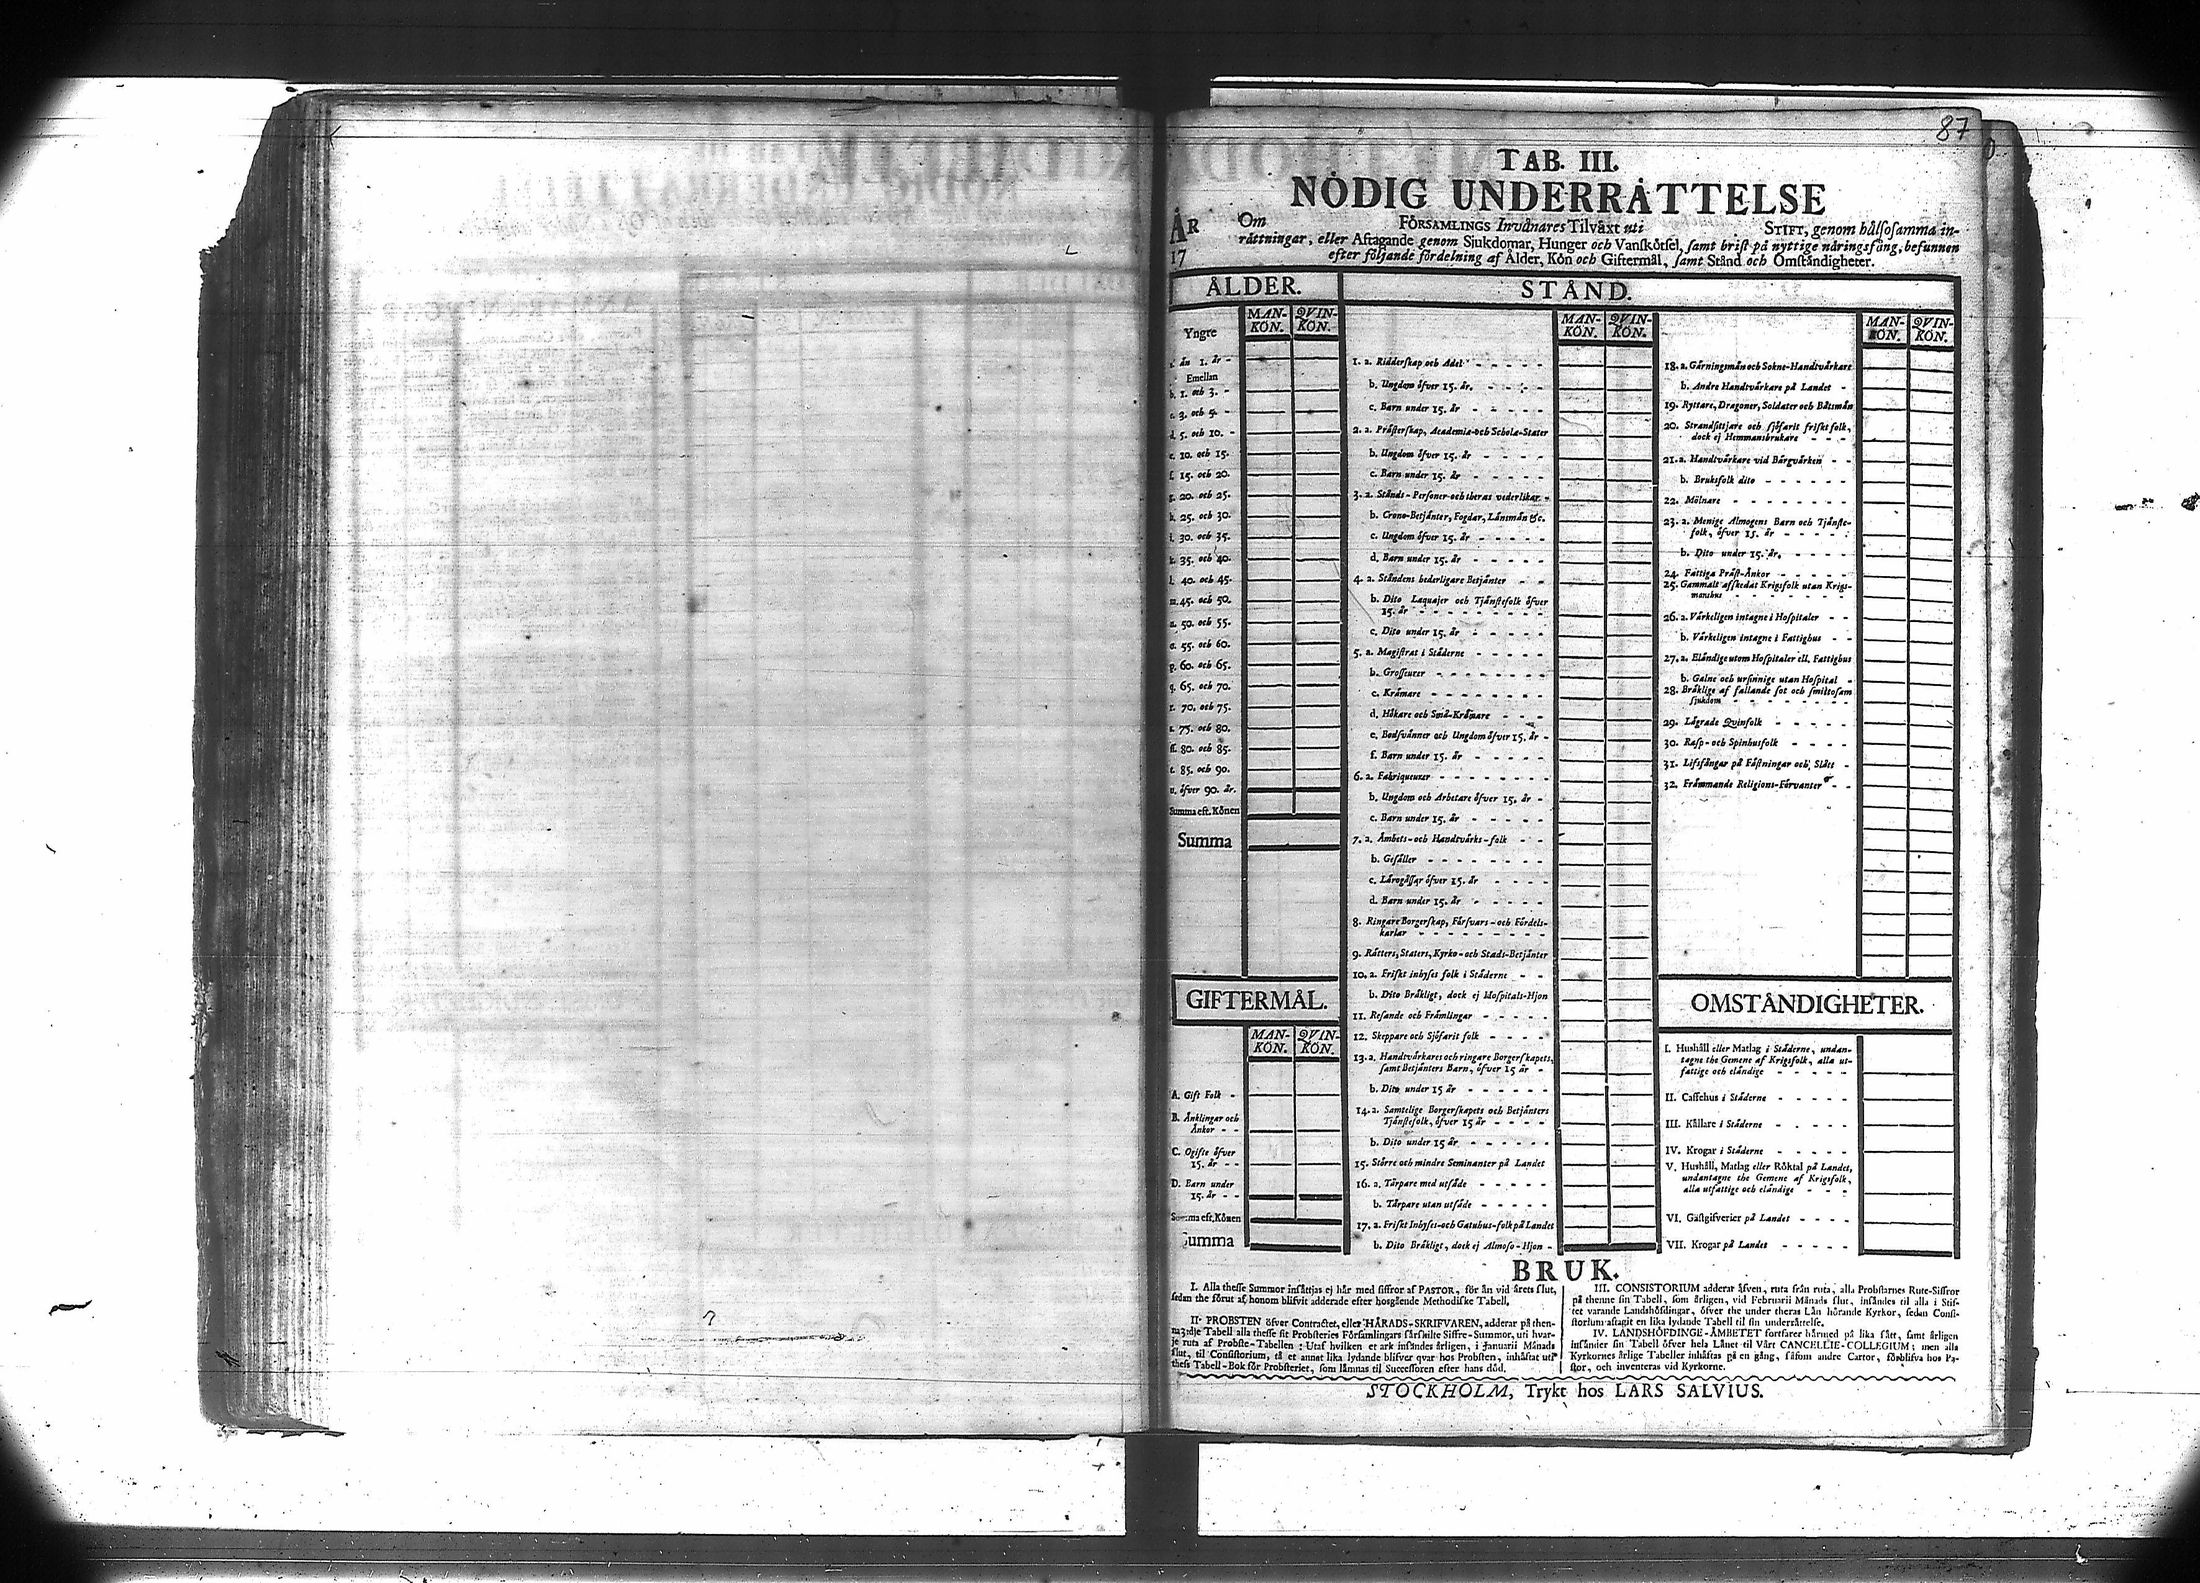 87
TAB. III.
NÖDIG UNDERRÅTTELSE
ÅR
17
Om FÖRSAMLINGS Invånares Tilväxt uti STIFT, genom hålsosamma in-
råttningar, eller Aftagande genom Sjukdomar, Hunger och Vanskötsel, samt brist på nyttige näringsfång, befunnen
efter följande fördelning af Ålder, Kön och Giftermål, samt Stånd och Omståndigheter.
ÅLDER.
MAN- QVIN-
KÖN. KÖN.
Yngre
än 1. år -
Emellan
b. 1. och 3. -
c. 3. och 5. -
d. 5. och 10. -
e. 10. och 15.
f. 15. och 20.
g. 20. och 25.
h. 25. och 30.
i. 30. och 35.
k. 35. och 40.
l. 40. och 45.
m. 45. och 50.
n. 50. och 55.
o. 55. och 60.
p. 60. och 65.
q. 65. och 70.
r. 70. och 75.
s. 75. och 80.
ss. 80. och 85.
t. 85. och 90.
u. öfver 90. år.
Summa eft. Könen
Summa
GIFTERMÅL.
MAN- QVIN-
KÖN. KÖN.
A. Gift Folk -
B. Änklingar och
Änkor - -
C. Ogifte öfver
15. år - -
D. Barn under
15. år - -
Summa eft. Könen
Summa
STÅND.
MAN- QVIN-
KÖN. KÖN.
1. a. Ridderskap och Adel - - - - -
b. Ungdom öfver 15. år. - - - -
c. Barn under 15. år - - - -
2. a. Prästerskap, Academiæ-och Scholæ-Stater
b. Ungdom öfver 15. år - - - -
c. Barn under 15. år - - - -
3. a. Stånds-Personer och theras vederlikar -
b. Crono-Betjänter, Fogdar, Länsmän &c.
c. Ungdom öfver 15. år - - - -
d. Barn under 15. år - - - -
4. a. Ståndens bederligare Betjänter - -
b. Dito Laquajer och Tjänstefolk öfver
15. år - - - - - - -
c. Dito under 15. år - - - -
5. a. Magistrat i Städerne - - - -
b. Grosseurer - - - - - -
c. Krämare - - - - - -
d. Håkare och Små-Krämare - - -
e. Bodsvänner och Ungdom öfver 15. år -
f. Barn under 15. år - - - -
6. a. Fabriqueurer - - - - - -
b. Ungdom och Arbetare öfver 15. år -
c. Barn under 15. år - - - -
7. a. Ämbets-och Handtvärks-folk - -
b. Gesäller - - - - - -
c. Lärogåssar öfver 15. år - - - -
d. Barn under 15. år - - - -
8. Ringare Borgerskap, Försvars-och Fördels-
karlar - - - - - - -
9. Rätters, Staters, Kyrko-och Stads-Betjänter
10. a. Friskt inhyses folk i Städerne - -
b. Dito Bräkligt, dock ej Hospitals-Hjon
11. Resande och Främlingar - - - -
12. Skeppare och Sjöfarit folk - - - -
13. a. Handtvärkares och ringare Borgerskapets,
samt Betjänters Barn, öfver 15 år -
b. Dito under 15 år - - - - -
14. a. Samtelige Borgerskapets och Betjänters
Tjänstefolk, öfver 15 år - - - -
b. Dito under 15 år - - - - -
15. Större och mindre Seminanter på Landet
16. a. Tårpare med utsäde - - - -
b. Tårpare utan utsäde - - - -
17. a. Friskt Inhyses-och Gatuhus-folk på Landet
b. Dito Bräkligt, dock ej Almoso-Hjon -
MAN- QVIN-
KÖN. KÖN.
18. a. Gärningsmän och Sokne-Handtvärkare
b. Andre Handtvärkare på Landet -
19. Ryttare, Dragoner, Soldater och Båtsmän
20. Strandsittjare och sjöfarit friskt folk,
dock ej Hemmansbrukare - - -
21. a. Handtvärkare vid Bärgvärken - -
b. Bruksfolk dito - - - - - -
22. Mölnare - - - - - - - -
23. a. Menige Almogens Barn och Tjänste-
folk, öfver 15. år - - - - -
b. Dito under 15. år. - - - - -
24. Fattiga Präst-Änkor - - - - -
25. Gammalt afskedat Krigsfolk utan Krigs-
manshus - - - - - - -
26. a. Värkeligen intagne i Hospitaler - -
b. Värkeligen intagne i Fattighus - -
27. a. Eländige utom Hospitaler ell. Fattighus
b. Galne och ursinnige utan Hospital -
28. Bräklige af fallande sot och smittosam
sjukdom - - - - - - -
29. Lägrade Qvinfolk - - - -
30. Rasp-och Spinhusfolk - - - -
31. Lifsfångar på Fästningar och Slått -
32. Främmande Religions-Förvanter - -
OMSTÅNDIGHETER.
I. Hushåll eller Matlag i Städerne, undan-
tagne the Gemene af Krigsfolk, alla ut-
fattige och eländige - - - - -
II. Caffehus i Städerne - - - - -
III. Källare i Städerne - - - - -
IV. Krogar i Städerne - - - - -
V. Hushåll, Matlag eller Röktal på Landet,
undantagne the Gemene af Krigsfolk,
alla utfattige och eländige - - -
VI. Gästgifverier på Landet - - - -
VII. Krogar på Landet - - - - -
BRUK.
I. Alla thesse Summor insättjas ej här med siffror af PASTOR, för än vid årets slut,
sedan the förut af honom blifvit adderade efter hosgående Methodiske Tabell.
II. PROBSTEN öfver Contractet, eller HÅRADS-SKRIFVAREN, adderar på then-
na 3:dje Tabell alla thesse sit Probsteries Församlingars särskilte Siffre-Summor, uti hvar-
je ruta af Probste-Tabellen: Utaf hvilken et ark insändes årligen, i Januarii Månads
slut, til Consistorium, tå et annat lika lydande blifver qvar hos Probsten, inhäftat uti
thess Tabell-Bok för Probsteriet, som lämnas til Successoren efter hans död.
III. CONSISTORIUM adderar äfven, ruta från ruta, alla Probstarnes Rute-Siffror
på thenne sin Tabell, som årligen, vid Februarii Månads slut, insändes til alla i Stif-
tet varande Landshöfdingar, öfver the under theras Län hörande Kyrkor, sedan Consi-
storium aftagit en lika lydande Tabell til sin underrättelse.
IV. LANDSHÖFDINGE-ÄMBETET fortfarer härmed på lika sätt, samt årligen
insänder sin Tabell öfver hela Länet til Vårt CANCELLIE-COLLEGIUM; men alla
Kyrkornes årlige Tabeller inhäftas på en gång, såsom andre Cartor, förblifva hos Pa-
stor, och inventeras vid Kyrkorne.
STOCKHOLM, Tryckt hos LARS SALVIUS.